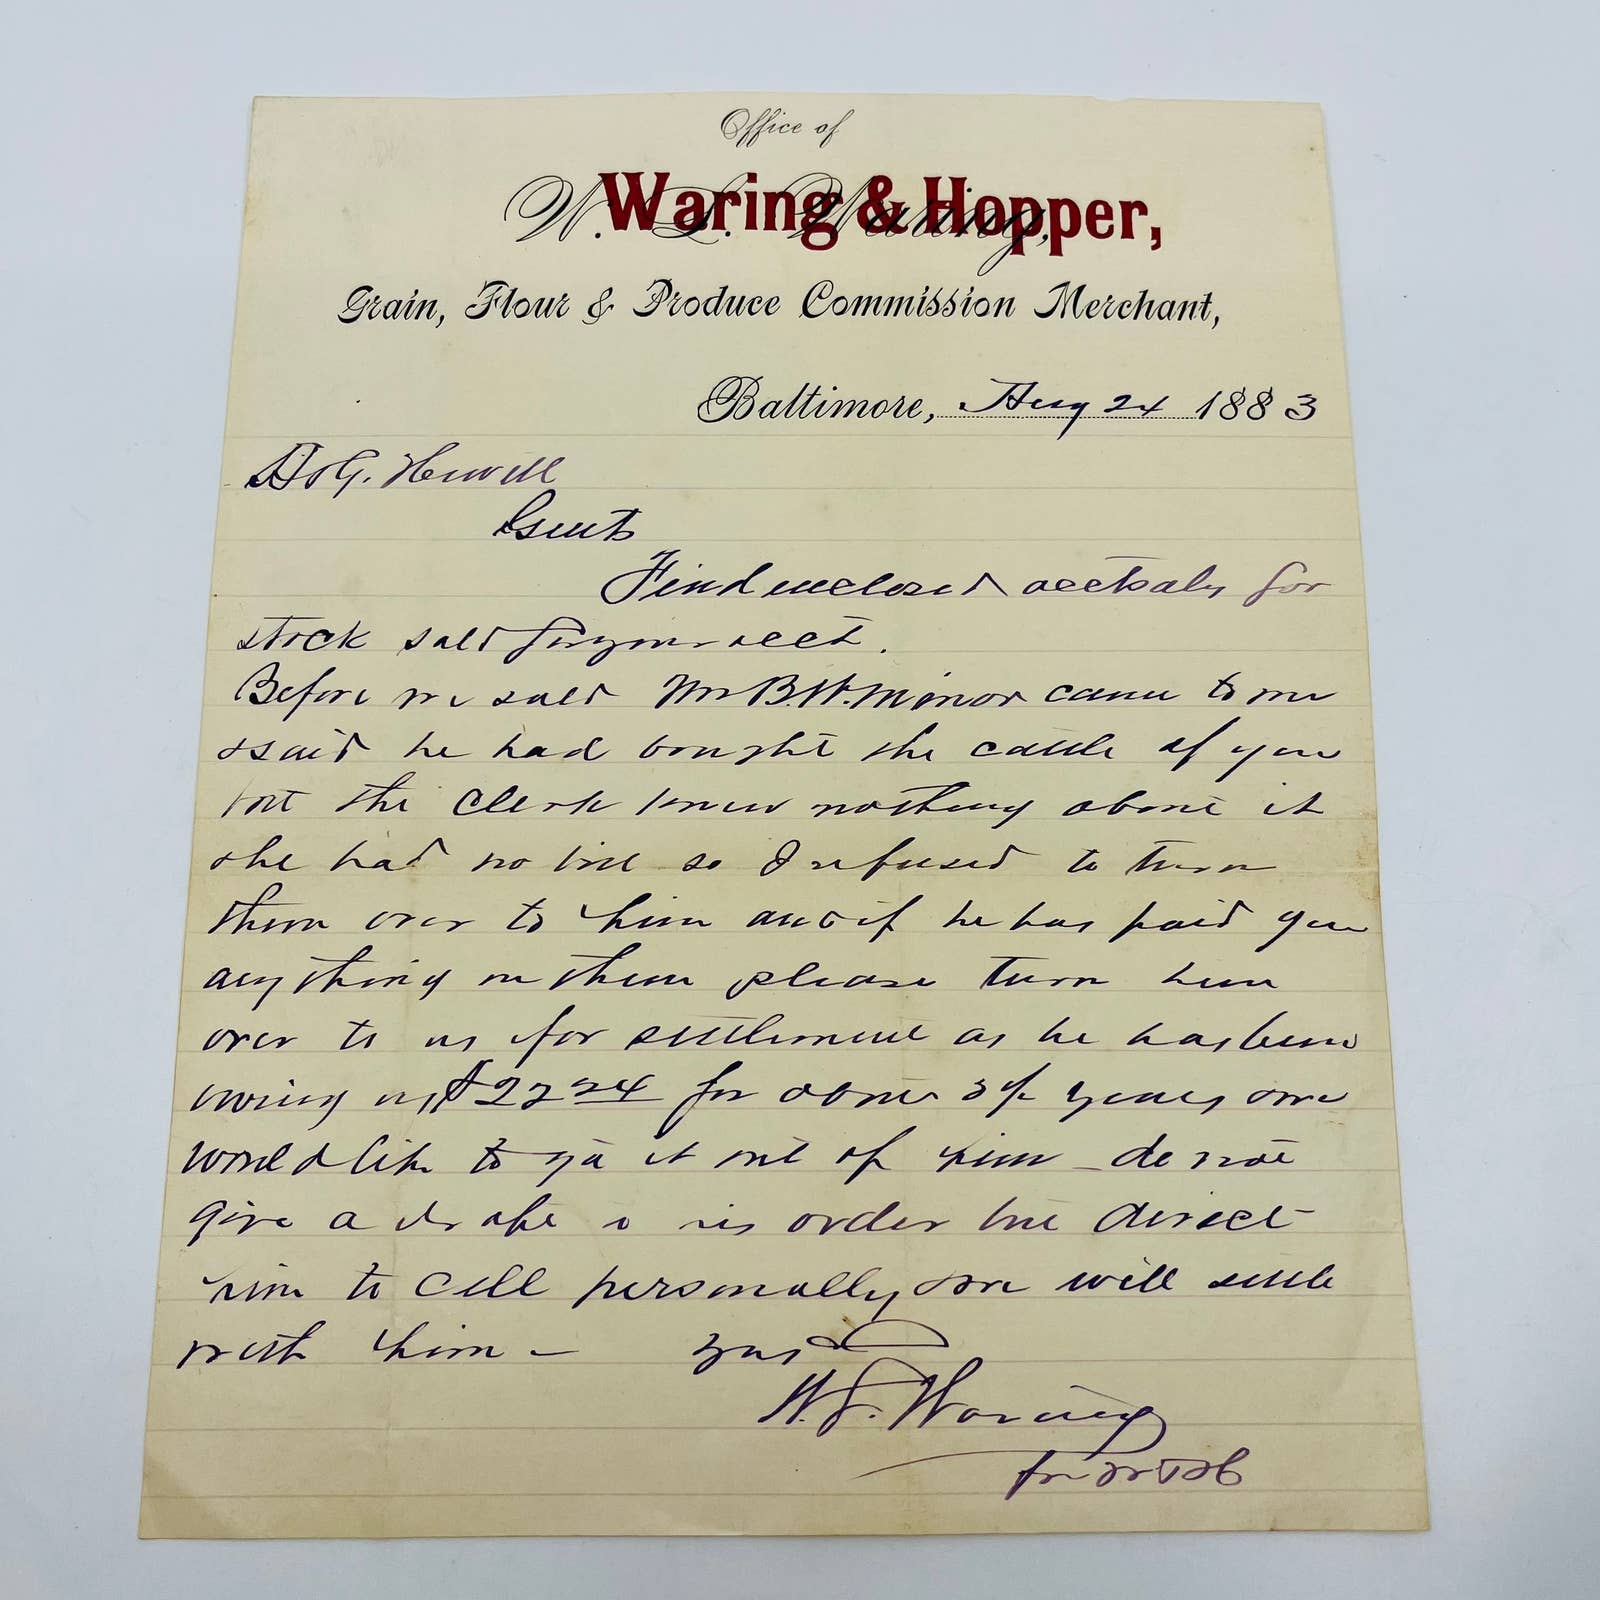 Office of
W. L. Waring,
Waring & Hopper,
Grain, Flour & Produce Commission Merchant,
Baltimore, Aug 24 1883
Gents
Find enclosed acct sales for
stock sold for your acct.
Before we sold Mr B.W. Minor came to me
& said he had bought the cattle of you
but the Clerk knew nothing about it
& he had no bill so I refused to turn
them over to him and if he has paid you
anything on them please turn him
over to us for settlement as he has been
owing us $22 24 for about 3 years & we
would like to get it out of him - do not
give a draft or his order but direct
him to call personally & we will settle
with him - Yours
W. L. Waring
for W & H